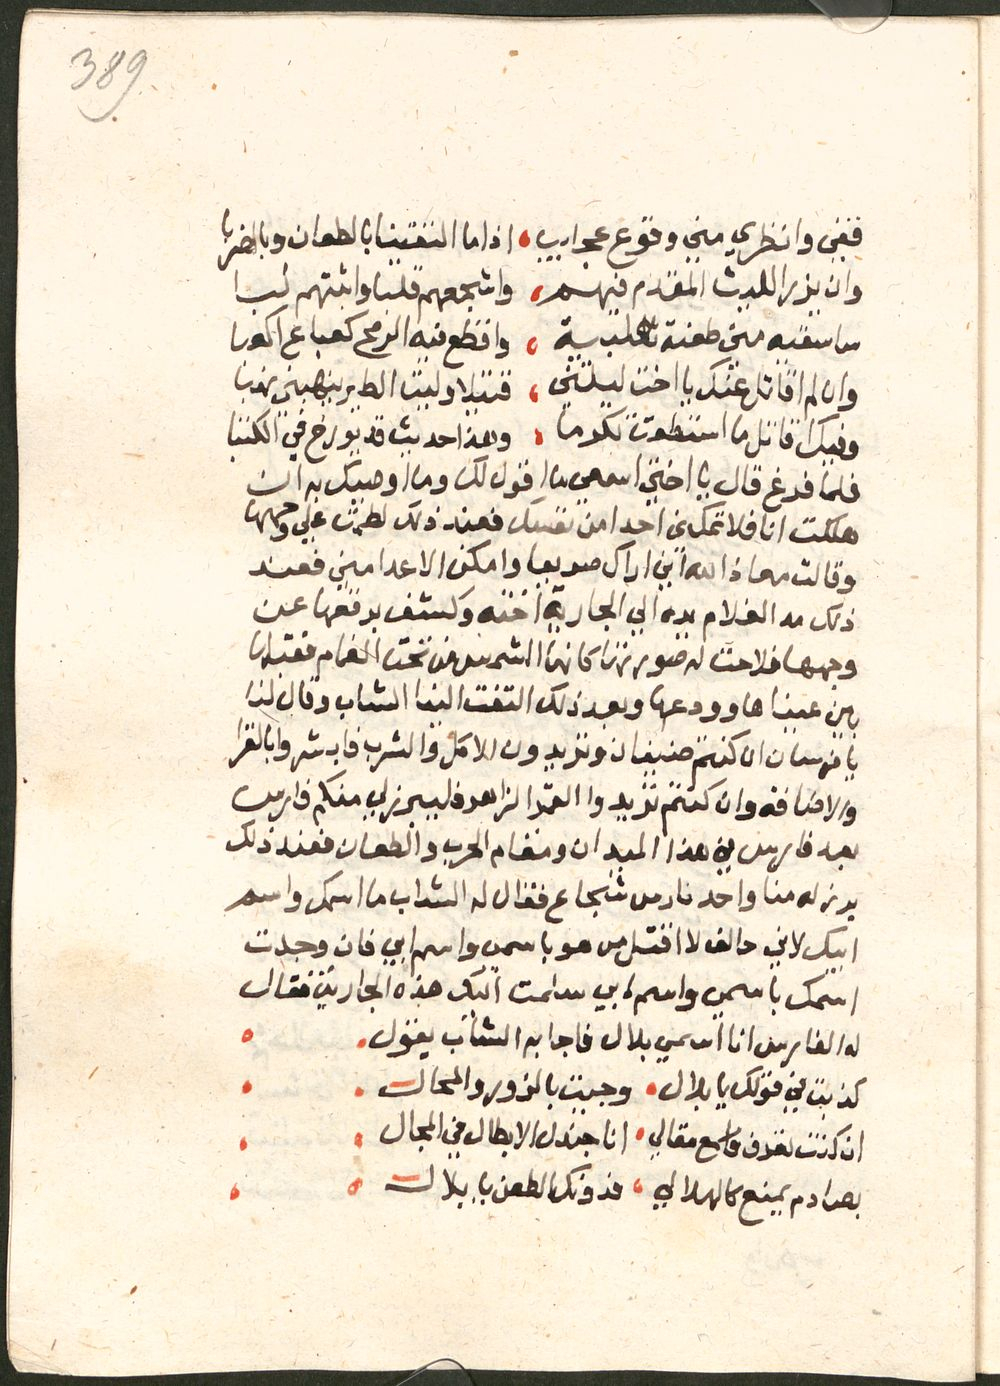 389
ففي وانظري مني وقوع عجايب اذا ما التقينا بالطعان وبالضربا
وان يزر الليث المقدم فيهم واشجعهم قلبا واثبتهم لبا
ساسقيه مني طعنة ثعلبية واقطع فيه الرمح كعبا
وان لم اقاتل عنك يا اخت ليلتي قتيلا وليت الطير ينهبني نهبا
وفيك اقاتل ما استطعت تكرما وهذا حديث قد يورخ في الكتبا
فلما فرغ قال يا اختي اسمعي ما اقول لك وما اوصيك به ان
هلكت انا فلا تمكني احدا من نفسك فعند ذلك لطمت علي وجهها
وقالت معاذ الله ان اراك صريعا وامكن الاعدا مني فعند
ذلك مد الغلام يده الي الجارية اخته وكشف برقعها عن
وجهها فلاحت له صورتها كانها الشمس من تحت الغمام فقبلها
بين عيناها وودعها وبعد ذلك التفت الينا الشاب وقال لنا
يا فرسان ان كنتم ضيفان وتريدون الاكل والشرب فابشروا بالقرا
والاضافة وان كنتم تريدوا القمر الزاهر فليبرز لي منكم فارس
بعد فارس في هذا الميدان ومقام الحرب والطعان فعند ذلك
برز له منا واحد فارس شجاع فقال له الشاب ما اسمك واسم
ابيك لاني حالف لا اقتل من هو باسمي واسم ابي فان وجدت
اسمك باسمي واسم ابي سلمت اليك هذه الجارية فقال
له الفارس انا اسمي بلال فاجابه الشاب يقول
كذبت في قولك يا بلال وجيت بالزور والمحال
ان كنت تعرف فاسمع مقالي انا جندل الابطال في المجال
بصارم كالهلالي فدونك الطعن يا بلال